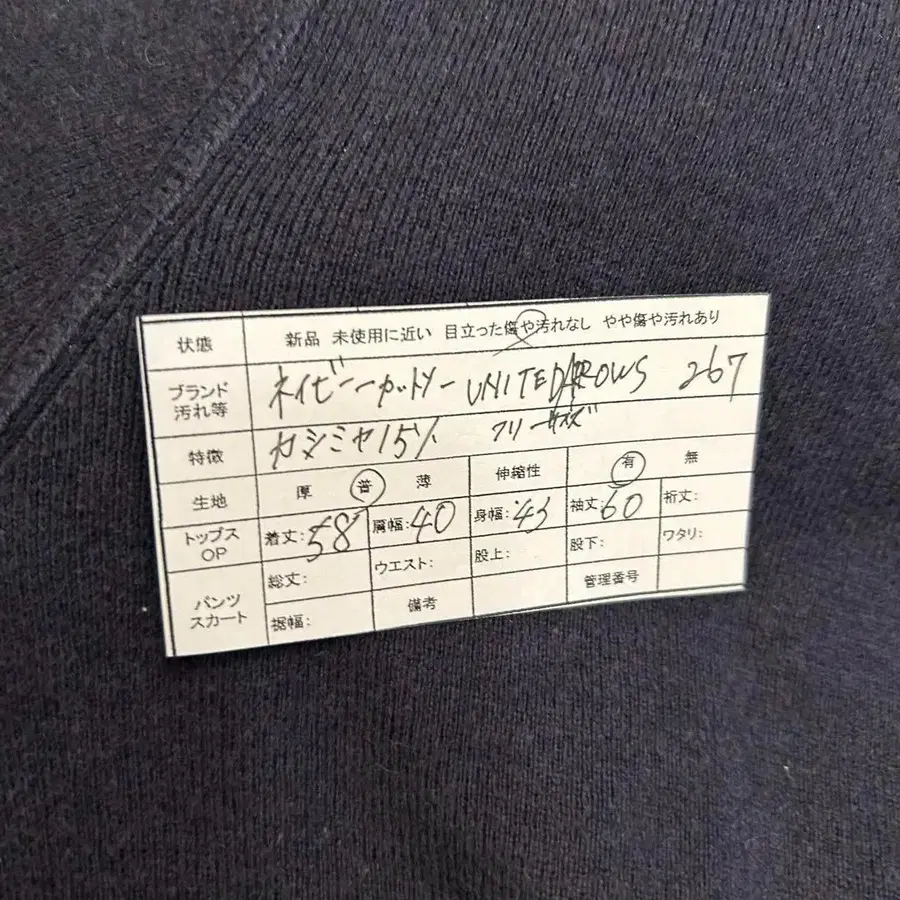 状態 新品 未使用に近い 目立った傷や汚れなし やや傷や汚れあり
ブランド 汚れ等 ネイビーカットソー UNITED ARROWS 267
特徴 カシミヤ15% フリーサイズ
生地 厚 普 薄 伸縮性 有 無
トップス OP 着丈:58 肩幅:40 身幅:43 袖丈:60 裄丈:
パンツ スカート 総丈: ウエスト: 股上: 股下: ワタリ:
裾幅: 備考 管理番号